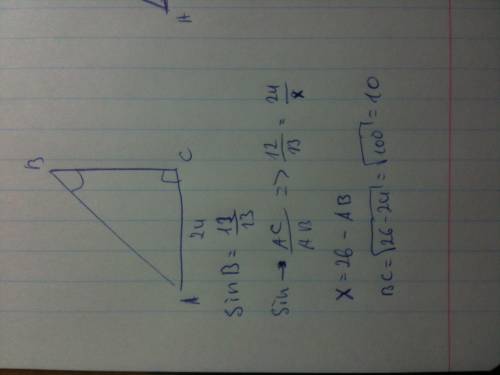 H
B
A
24
C
sin B = 12/13
sin → AC/AB => 12/13 = 24/x
x = 26 - AB
BC = √26-24 = √100 = 10